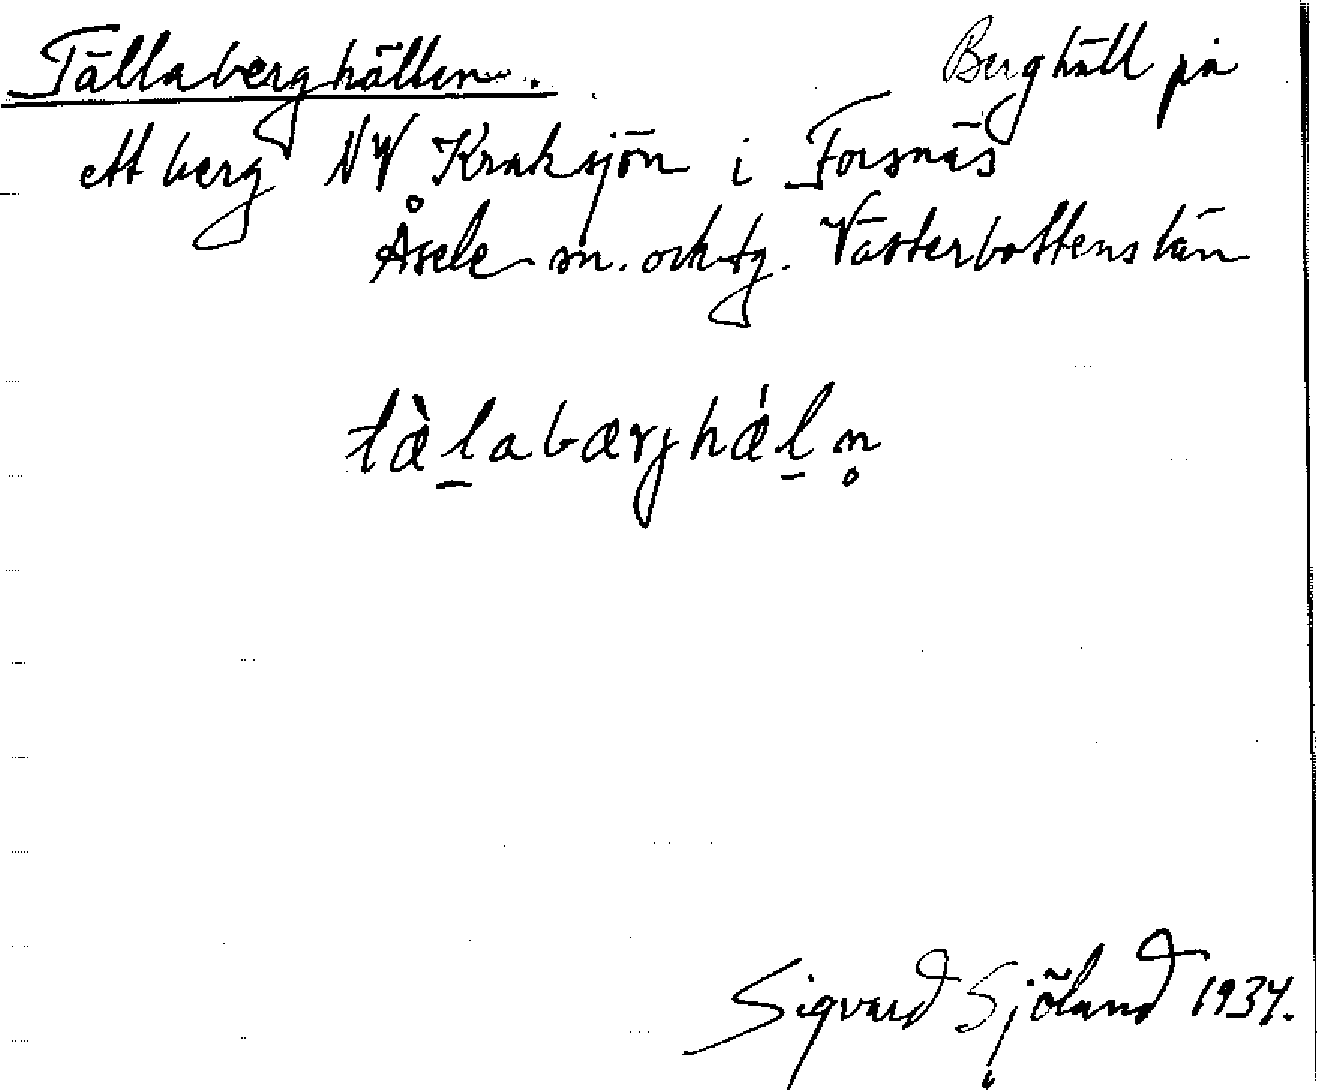 Tällaberghällen. Berghäll på
ett berg NW Kraksjön i Forsnäs
Åsele sn. och tg. Västerbottens län
tæ̀l̲abærjhǽl̲n̥
Sigvard Sjöland 1934.